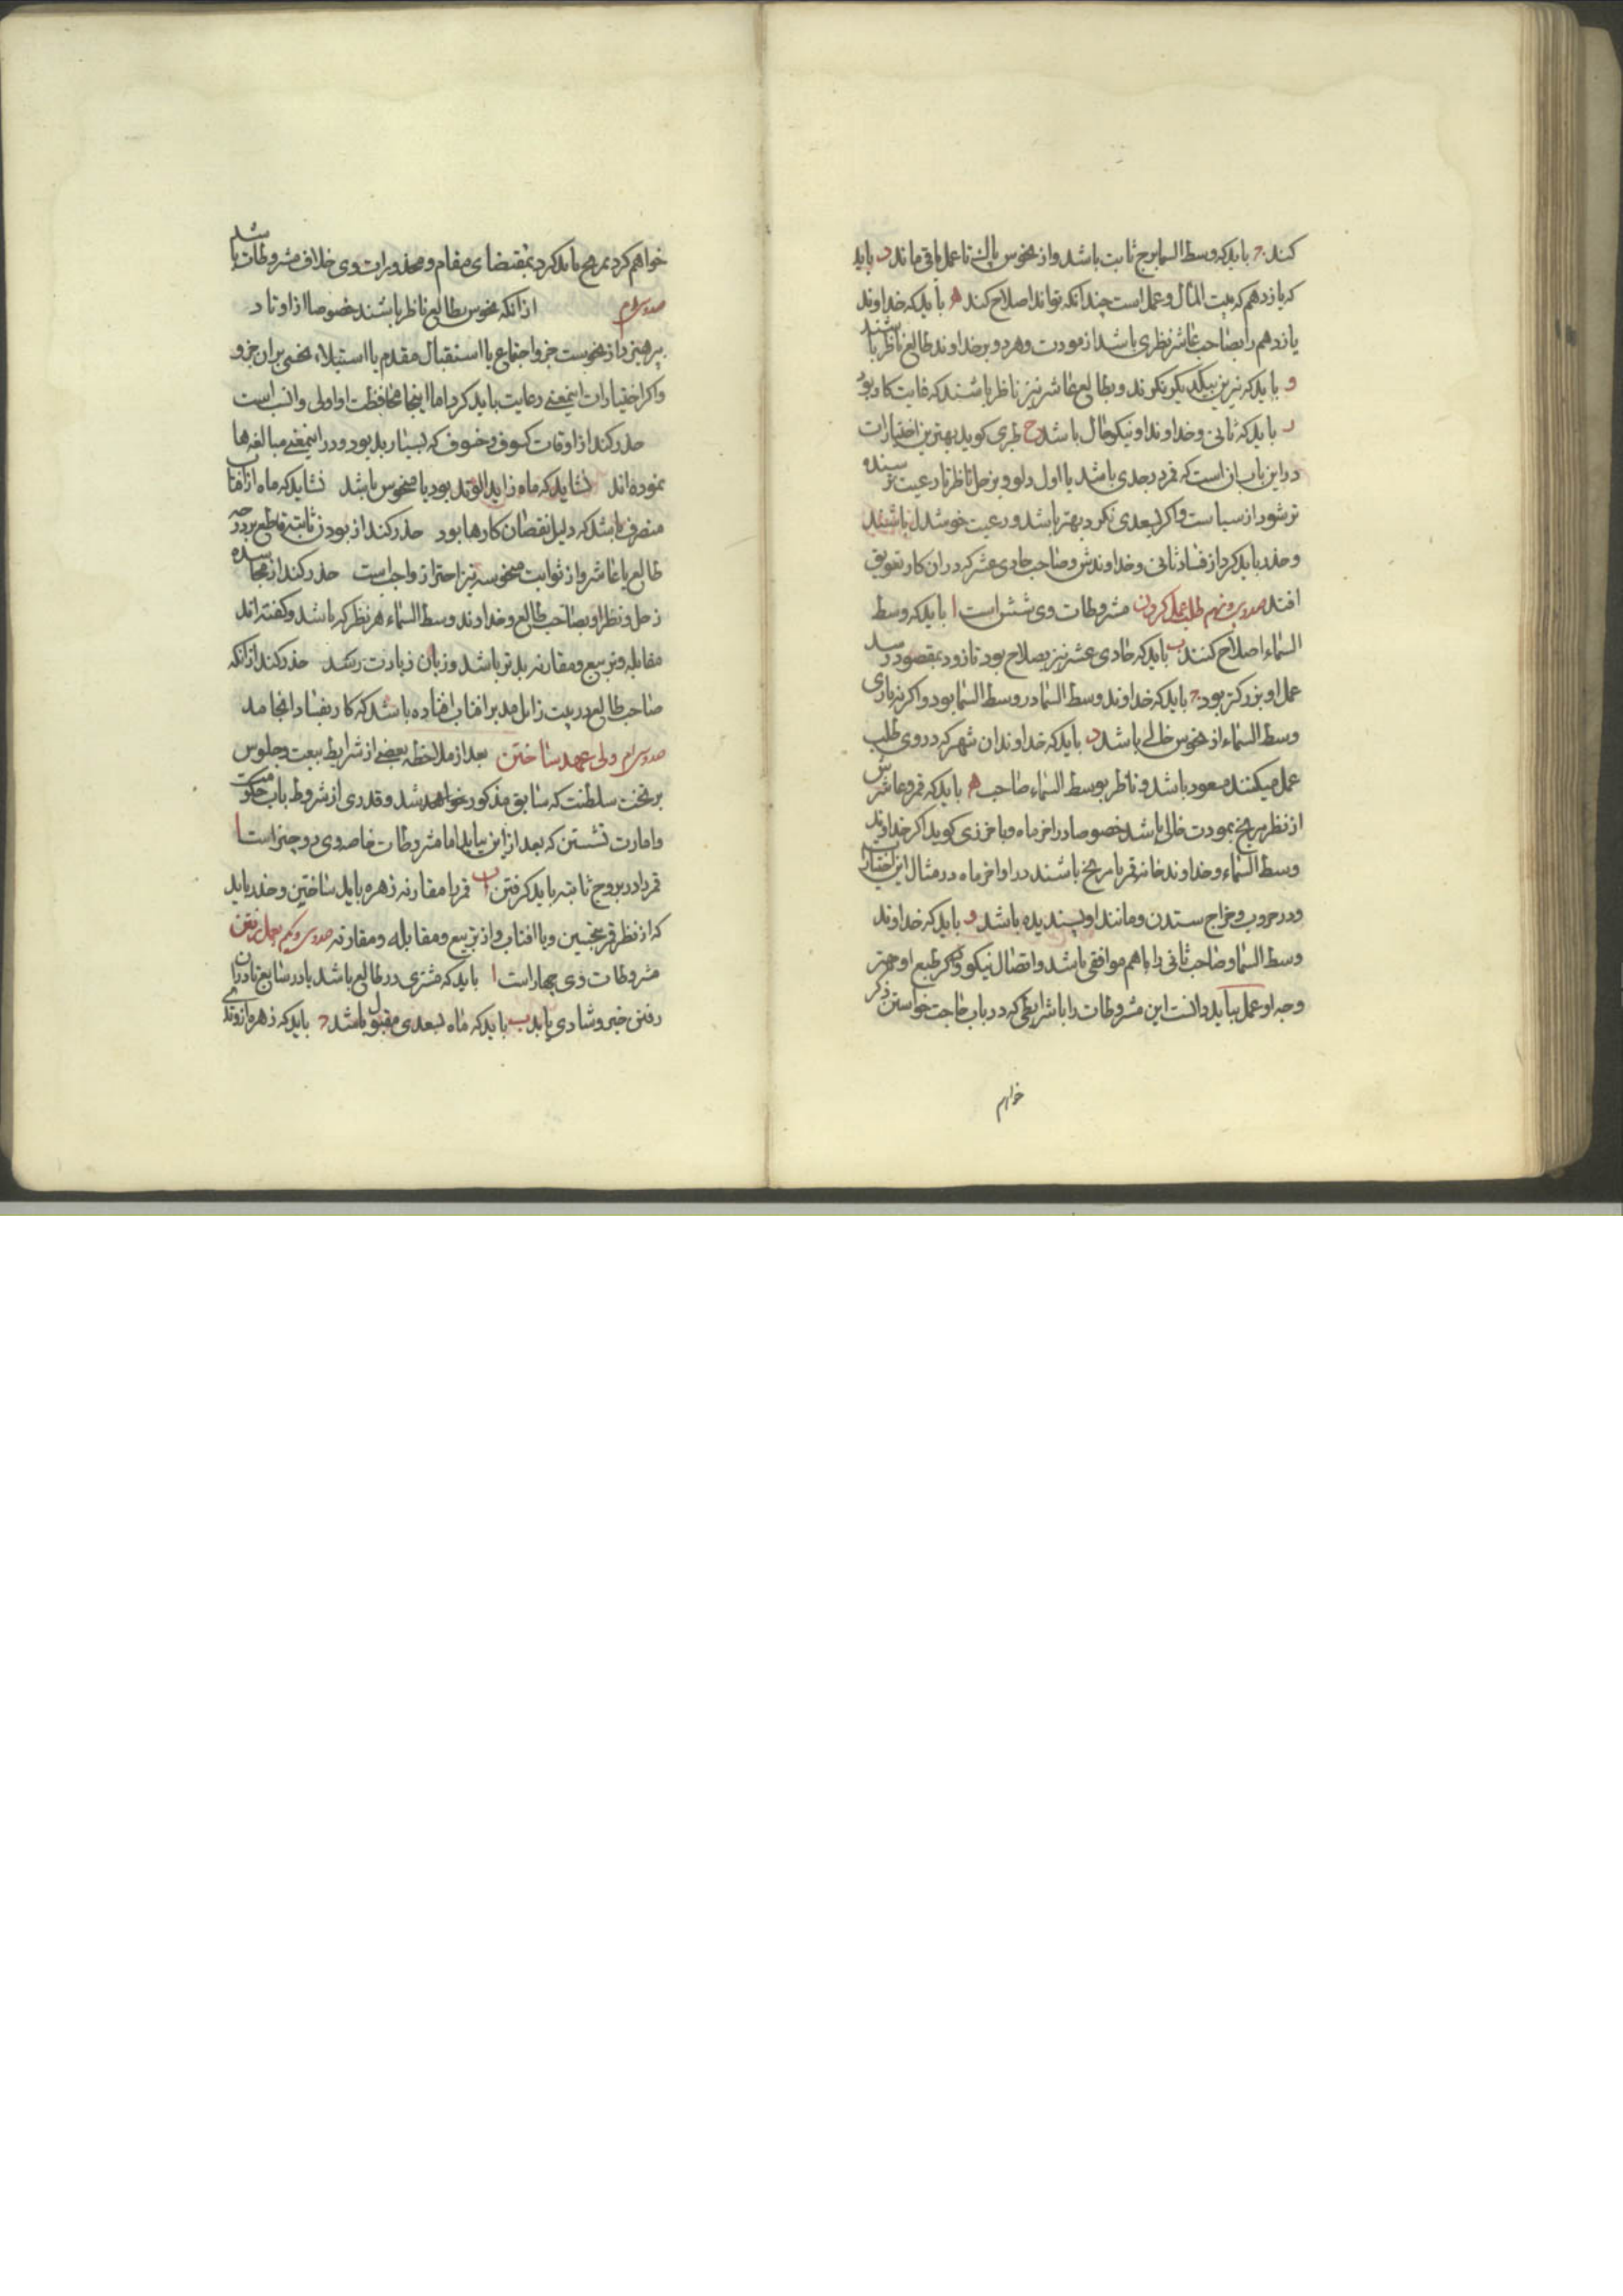 کند ج باید که وسط السما برج ثابت باشد و از نحوس پاک تا عمل باقی ماند د باید
که یازدهم که بیت المال و عمل است چندانکه تواند اصلاح کند ه باید که خداوند
یازدهم را بصاحب عاشر نظری باشد از مودت و هر دو بر خداوند طالع ناظر باشند
و باید که نیرین بیکدیگر نکرند و بطالع عاشر نیز ناظر باشند که غایت کار بود
ر باید که ثانی و خداوند او نیکوحال باشد ح طبری کوید بهترین اختیارات
در این باب ان است که قمر در جدی باشد یا اول دلو و بزحل ناظر تا رعیت ترسنده
تر شود از سیاست و اکر بسعدی نکرد بهتر باشد و رعیت خوشدل باشند
و حذر باید کرد از فساد ثانی و خداوندش و صاحب حادی عشر که در ان کار تعویق
افتد صدوسی‌ونهم طلب عمل کردن مشروطات وی شش است ا باید که وسط
السماء اصلاح کنند ب باید که حادی عشر نیز بصلاح بود تا زود بمقصود رسد
عمل او بزرکتر بود ج باید که خداوند وسط السما در وسط السما بود و اکر نه باری
وسط السماء از نحوس خالی باشد د باید که خداوند ان شهر که در وی طلب
عمل میکنند مسعود باشد و ناظر بوسط السماء صاحب ه باید که قمر و عاشرش
از نظر مریخ بمودت خالی باشد خصوصا در اخر ماه و باخرزی کوید اکر خداوند
وسط السماء و خداوند خانه قمر با مریخ باشند در اواخر ماه در مثال این اختیارات
و در حروب و خراج ستدن و مانند او پسندیده باشد و باید که خداوند
وسط السما و صاحب ثانی را با هم موافقی باشد و اتصال نیکو و دیگر طبع او جهتر
وجه او عمل بباید دانست این مشروطات را با شرایطی که در باب حاجت خواستن ذکر
خواهم
خواهم کرد بمرهج باید کرد بمقتضای مقام و محذورات وی خلاف مشروطات باشد
صدوسی‌ام از انکه نحوس بطالع ناظر باشند خصوصا از اوتاد
پرهیزد از نحوست جزو اجتماع یا استقبال مقدم یا استیلاء نحسی بر ان جزو
و اکر اختیارات اینمعنی رعایت باید کرد اما اینجا محافظت او اولی و انسب است
حذر کند از اوقات کسوف و خسوف که بسیار بد بود و در اینمعنی مبالغه‌ها
نموده‌اند نشاید که ماه زاید النور بود یا منحوس باشد نشاید که ماه از افتاب
منصرف باشد که دلیل نقصان کارها بود حذر کند از بودن ثابته قاطع بر درجه
طالع یا عاشر و از ثوابت منحوسه نیز احتراز واجب است حذر کند از مجاسده
زحل و نظر او بصاحب طالع و خداوند وسط السماء هر نظر که باشد و کفته‌اند
مقابله و تربیع و مقارنه بدتر باشد و زیان زیادت رسد حذر کند از انکه
صاحب طالع در بیت زایل مدبر افتاب افتاده باشد که کار بفساد انجامد
صدوسی‌ام ولی عهد ساختن بعد از ملاحظه بعضی از شرایط بیعت و جلوس
بر تخت سلطنت که سابق مذکور خواهد شد و قدری از شروط باب حکومت
و امارت نشستن که بعد از این بیاید اما مشروطات خاصه وی دو چیز است ا
قمر را در بروج ثابته باید کرفتن ب قمر را مقارنه زهره باید ساختن و حذر باید
که از نظر قمر بنحسین و با افتاب و از تربیع و مقابله و مقارنه صدوسی‌ویکم بعمل رفتن
مشروطات وی چهار است ا باید که مشتری در طالع باشد یا در سابع تا در ان
رفتن خیر و شادی یابد ب باید که ماه بسعدی مقبول باشد ج باید که زهره از وتدی